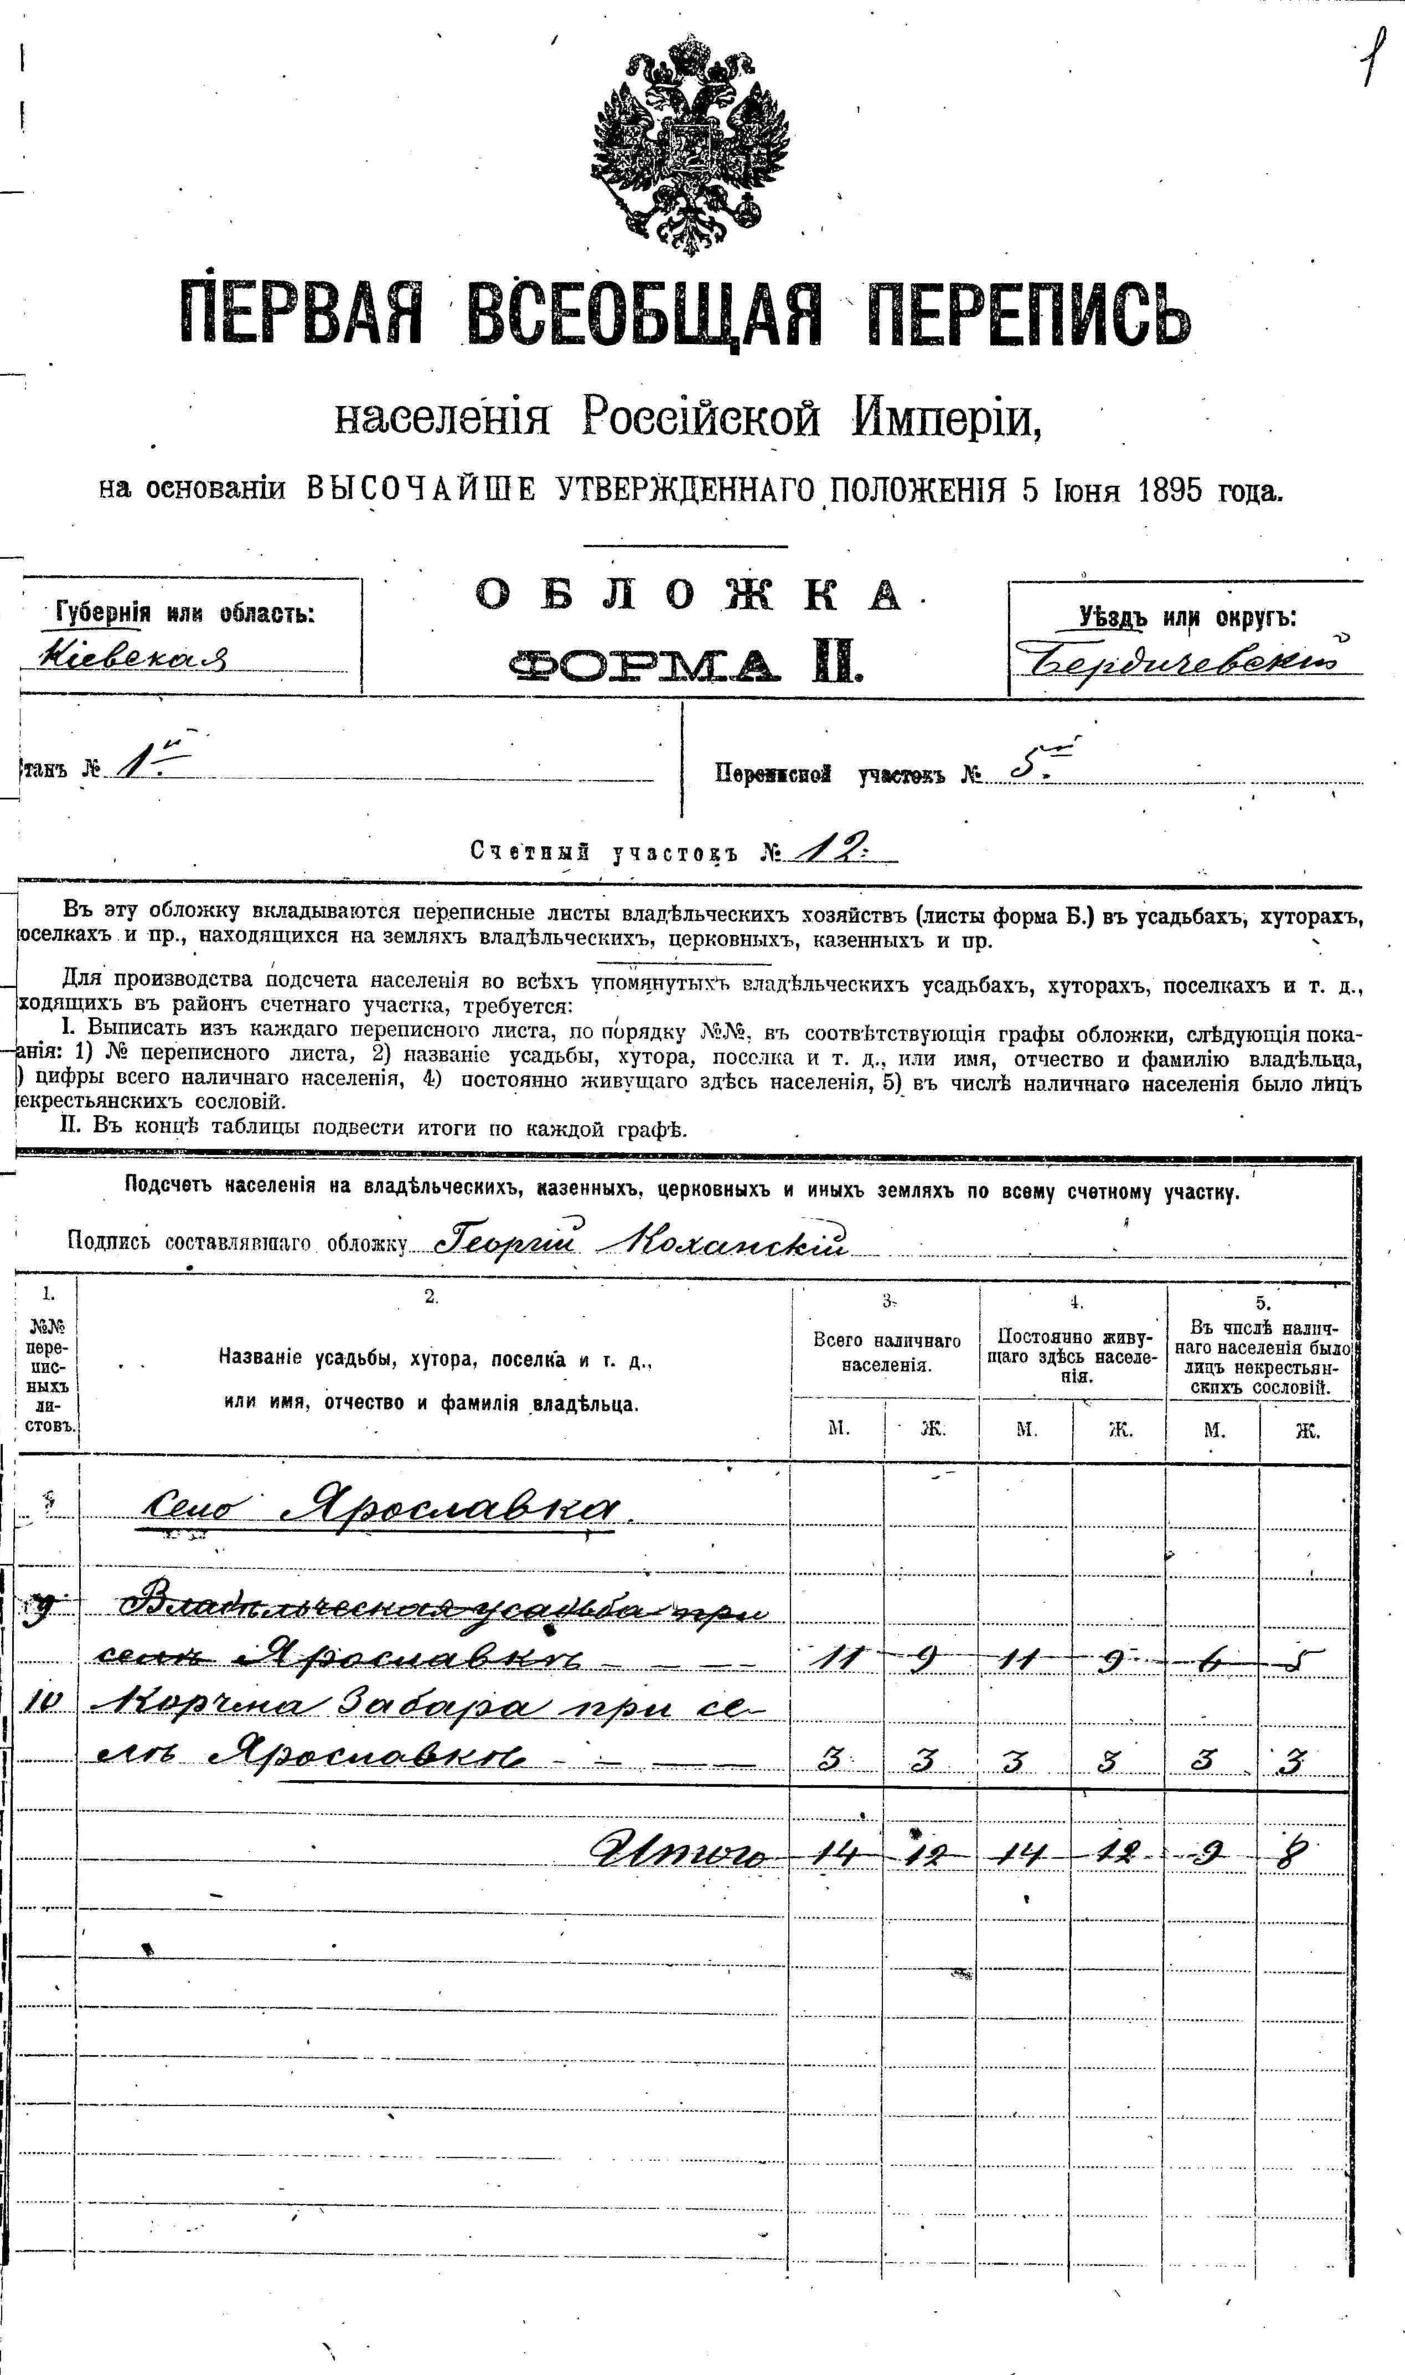 1
ПЕРВАЯ ВСЕОБЩАЯ ПЕРЕПИСЬ
населенія Россійской Имперіи,
на основаніи ВЫСОЧАЙШЕ УТВЕРЖДЕННАГО ПОЛОЖЕНІЯ 5 Іюня 1895 года.
ОБЛОЖКА
ФОРМА II.
Губернія или область:
Кіевская
Уѣздъ или округъ:
Бердичевскій
танъ № 1й
Переписной участокъ № 5й
Счетный участокъ № 12.
Въ эту обложку вкладываются переписные листы владѣльческихъ хозяйствъ (листы форма Б.) въ усадьбахъ, хуторахъ,
оселкахъ и пр., находящихся на земляхъ владѣльческихъ, церковныхъ, казенныхъ и пр.
Для производства подсчета населенія во всѣхъ упомянутыхъ владѣльческихъ усадьбахъ, хуторахъ, поселкахъ и т. д.,
ходящихъ въ районъ счетнаго участка, требуется:
I. Выписать изъ каждаго переписного листа, по порядку №№, въ соотвѣтствующія графы обложки, слѣдующія пока-
анія: 1) № переписного листа, 2) названіе усадьбы, хутора, поселка и т. д., или имя, отчество и фамилію владѣльца,
) цифры всего наличнаго населенія, 4) постоянно живущаго здѣсь населенія, 5) въ числѣ наличнаго населенія было лицъ
екрестьянскихъ сословій.
II. Въ концѣ таблицы подвести итоги по каждой графѣ.
Подсчетъ населенія на владѣльческихъ, казенныхъ, церковныхъ и иныхъ земляхъ по всему счетному участку.
Подпись составлявшаго обложку Георгій Коханскій
1.
№№
пере-
пис-
ныхъ
ли-
стовъ.
2.
Названіе усадьбы, хутора, поселка и т. д.,
или имя, отчество и фамилія владѣльца.
3.
Всего наличнаго
населенія.
4.
Постоянно живу-
щаго здѣсь населе-
нія.
5.
Въ числѣ налич-
наго населенія было
лицъ некрестьян-
скихъ сословій.
М. Ж. М. Ж. М. Ж.
село Ярославка.
9 Владѣльческая усадьба при
селѣ Ярославкѣ - — — — 11 9 11 9 6 5
10 Корчма Забара при се-
лѣ Ярославкѣ - — — — 3 3 3 3 3 3
Итого 14 12 14 12 9 8